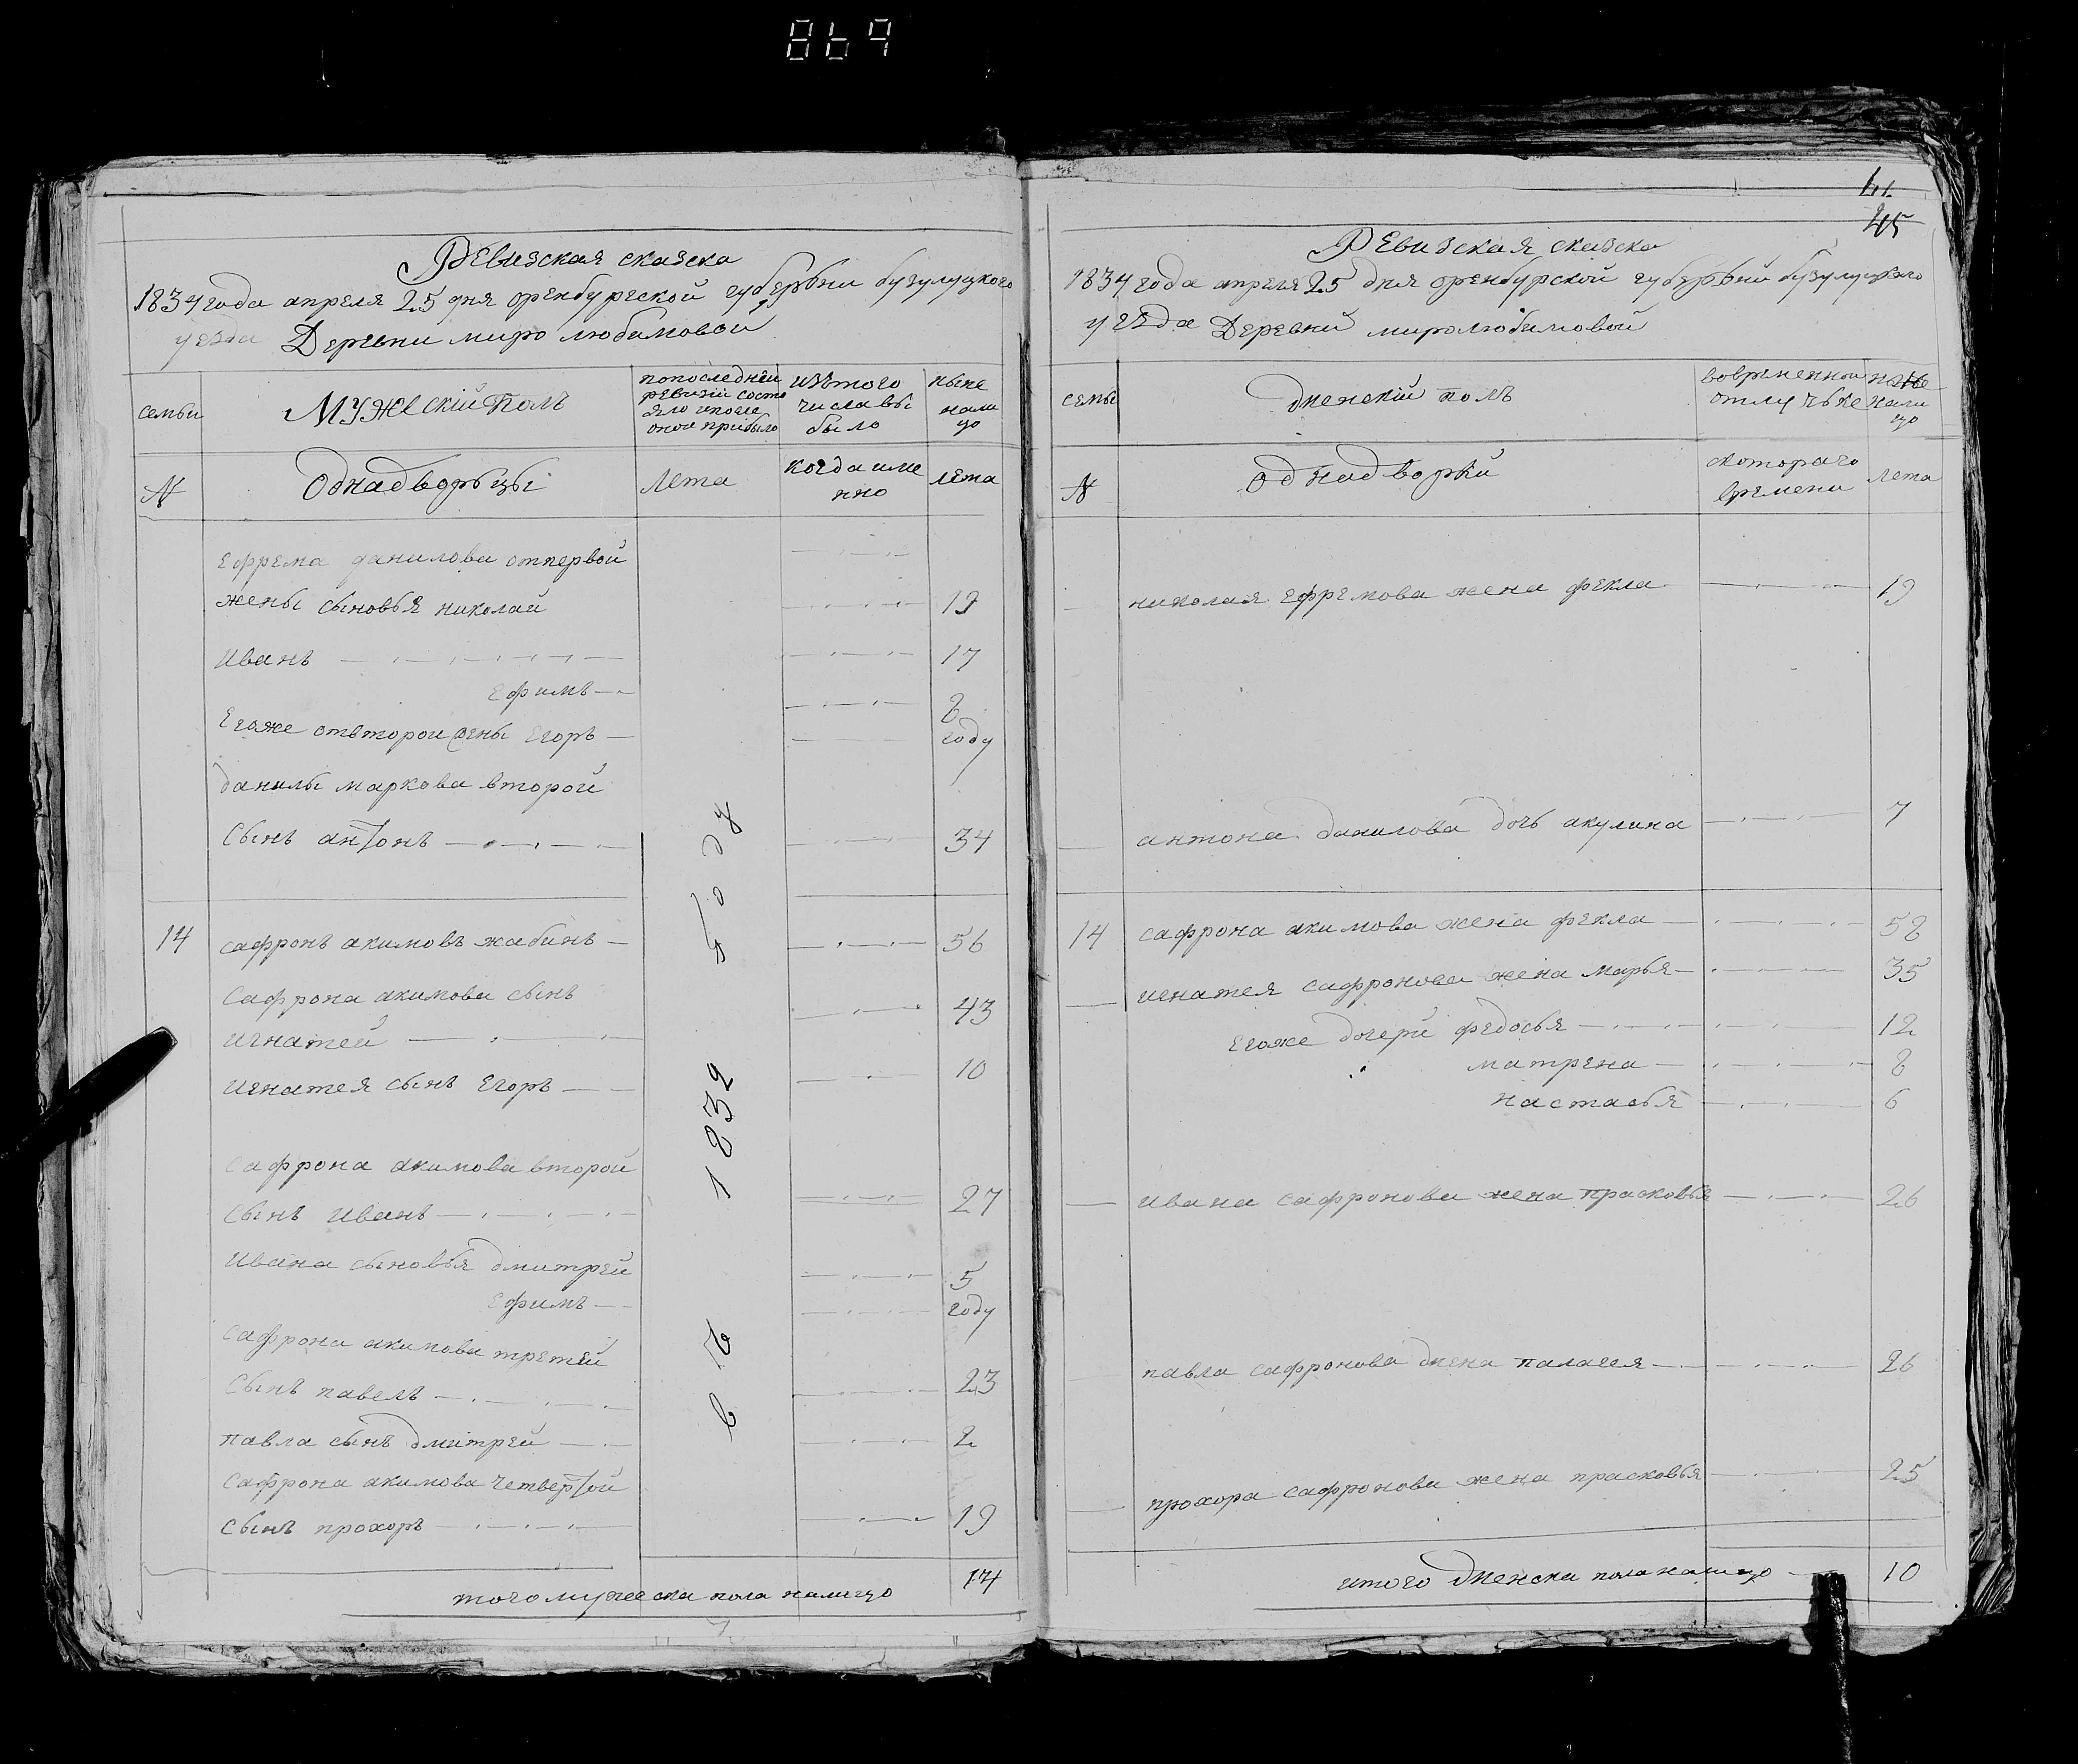 869
Ревизская сказска
1834 года апреля 25 дня оренбургской губернѣи бузулуцкого
уезда Деревни миро любимовой
семьи
МУЖЕСКІЙ Полъ
попоследнѣй ревизіи состояло и после оной прибыло
изътого числа выбыло
ныне налицо
№
Однадворьцы
лета
когда имено
лета
Ефрема данилова отпервой
жены сыновья николай 19
Иванъ 17
Ефимъ 8
Егоже отвторой жены Егоръ году
данилы маркова второй
Сынъ антонъ 34
14 сафронъ акимовъ жабинъ 56
Сафрона акимова сынъ
игнатей 43
игнатея сынъ Егоръ 10
сафрона акимова второй
Сынъ Иванъ 27
Ивана сыновья дмитрей 5
Ефимъ году
сафрона акимова третей
Сынъ павелъ 23
павла сынъ дмитрей 2
сафрона акимова четвертой
Сынъ прохоръ 19
въ 1832 году
того мужеска пола налицо 14
45
Ревизская сказска
1834 года апреля 25 дня оренбурской губернѣи бузулуцкаго
уезда Деревни миролюбимовой
семьи
женскій полъ
вовременной отлучьке
ныне налицо
№
однадворки
скоторaго времени
лета
николая Ефремова жена фекла 19
антона данилова дочь акулина 7
14 сафрона акимова жена фекла 58
игнатея сафронова жена марья 35
Егоже дочери федосья 12
матрена 8
настасья 6
ивана сафронова жена прасковья 26
павла сафронова жена палагея 26
прохора сафронова жена прасковья 25
итого женска пола налицо 10